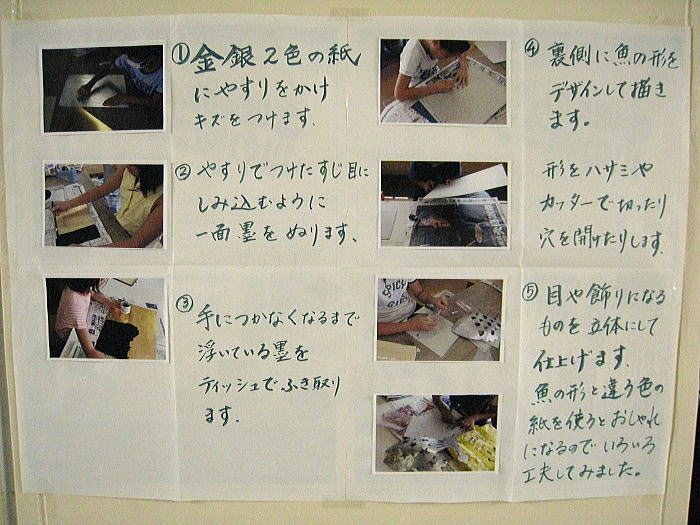 ①金銀2色の紙
にやすりをかけ
キズをつけます.
②やすりでつけたすじ目に
しみ込むように
一面墨をぬります、
③手につかなくなるまで
浮いている墨を
ティッシュでふき取り
ます.
④裏側に魚の形を
デザインして描き
ます。
形をハサミや
カッターで切ったり
穴を開けたりします.
⑤目や飾りになる
ものを立体にして
仕上げます.
魚の形と違う色の
紙を使うとおしゃれ
になるのでいろいろ
工夫してみました。